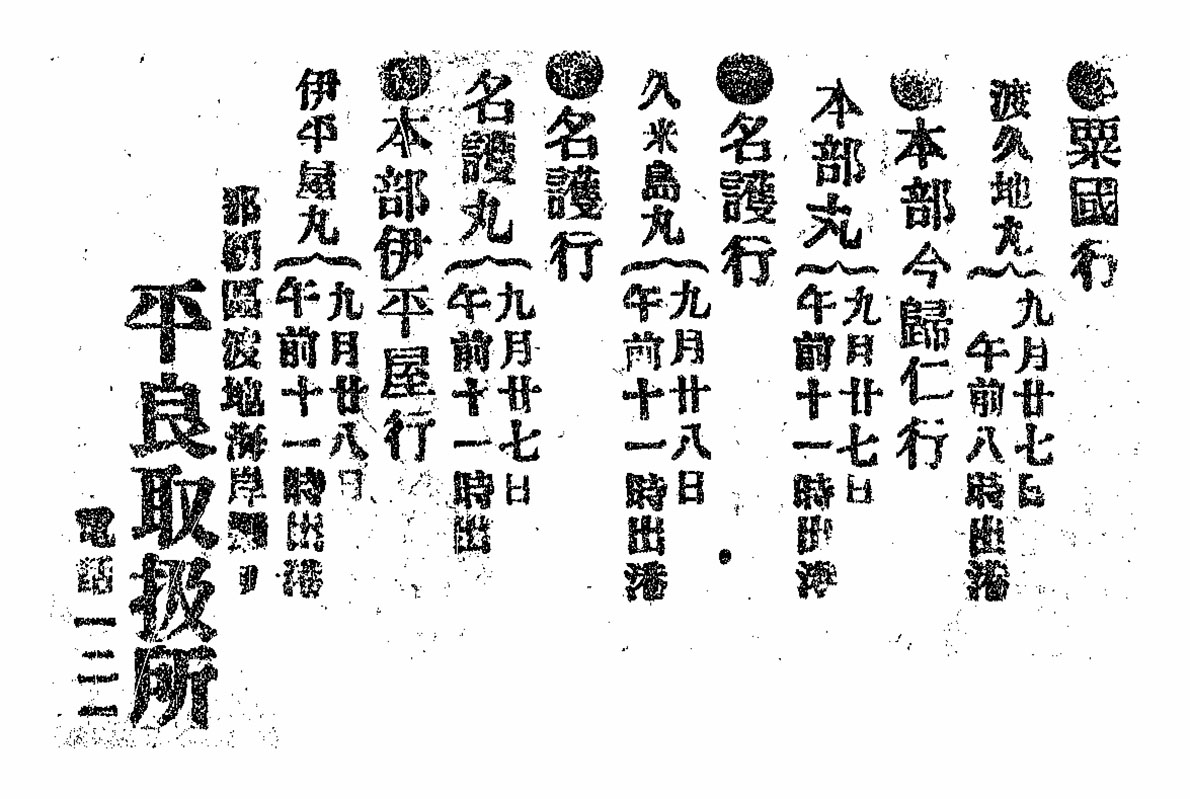 ●粟國行
渡久地丸
九月廿七日
午前八時出港
●本部今歸仁行
本部丸
九月廿七日
午前十一時出港
●名護行
久米島丸
九月廿八日
午前十一時出港
●名護行
名護丸
九月廿七日
午前十一時出
●本部伊平屋行
伊平屋丸
九月廿八日
午前十一時出港
那覇區渡地海岸通
平良取扱所
電話一三二